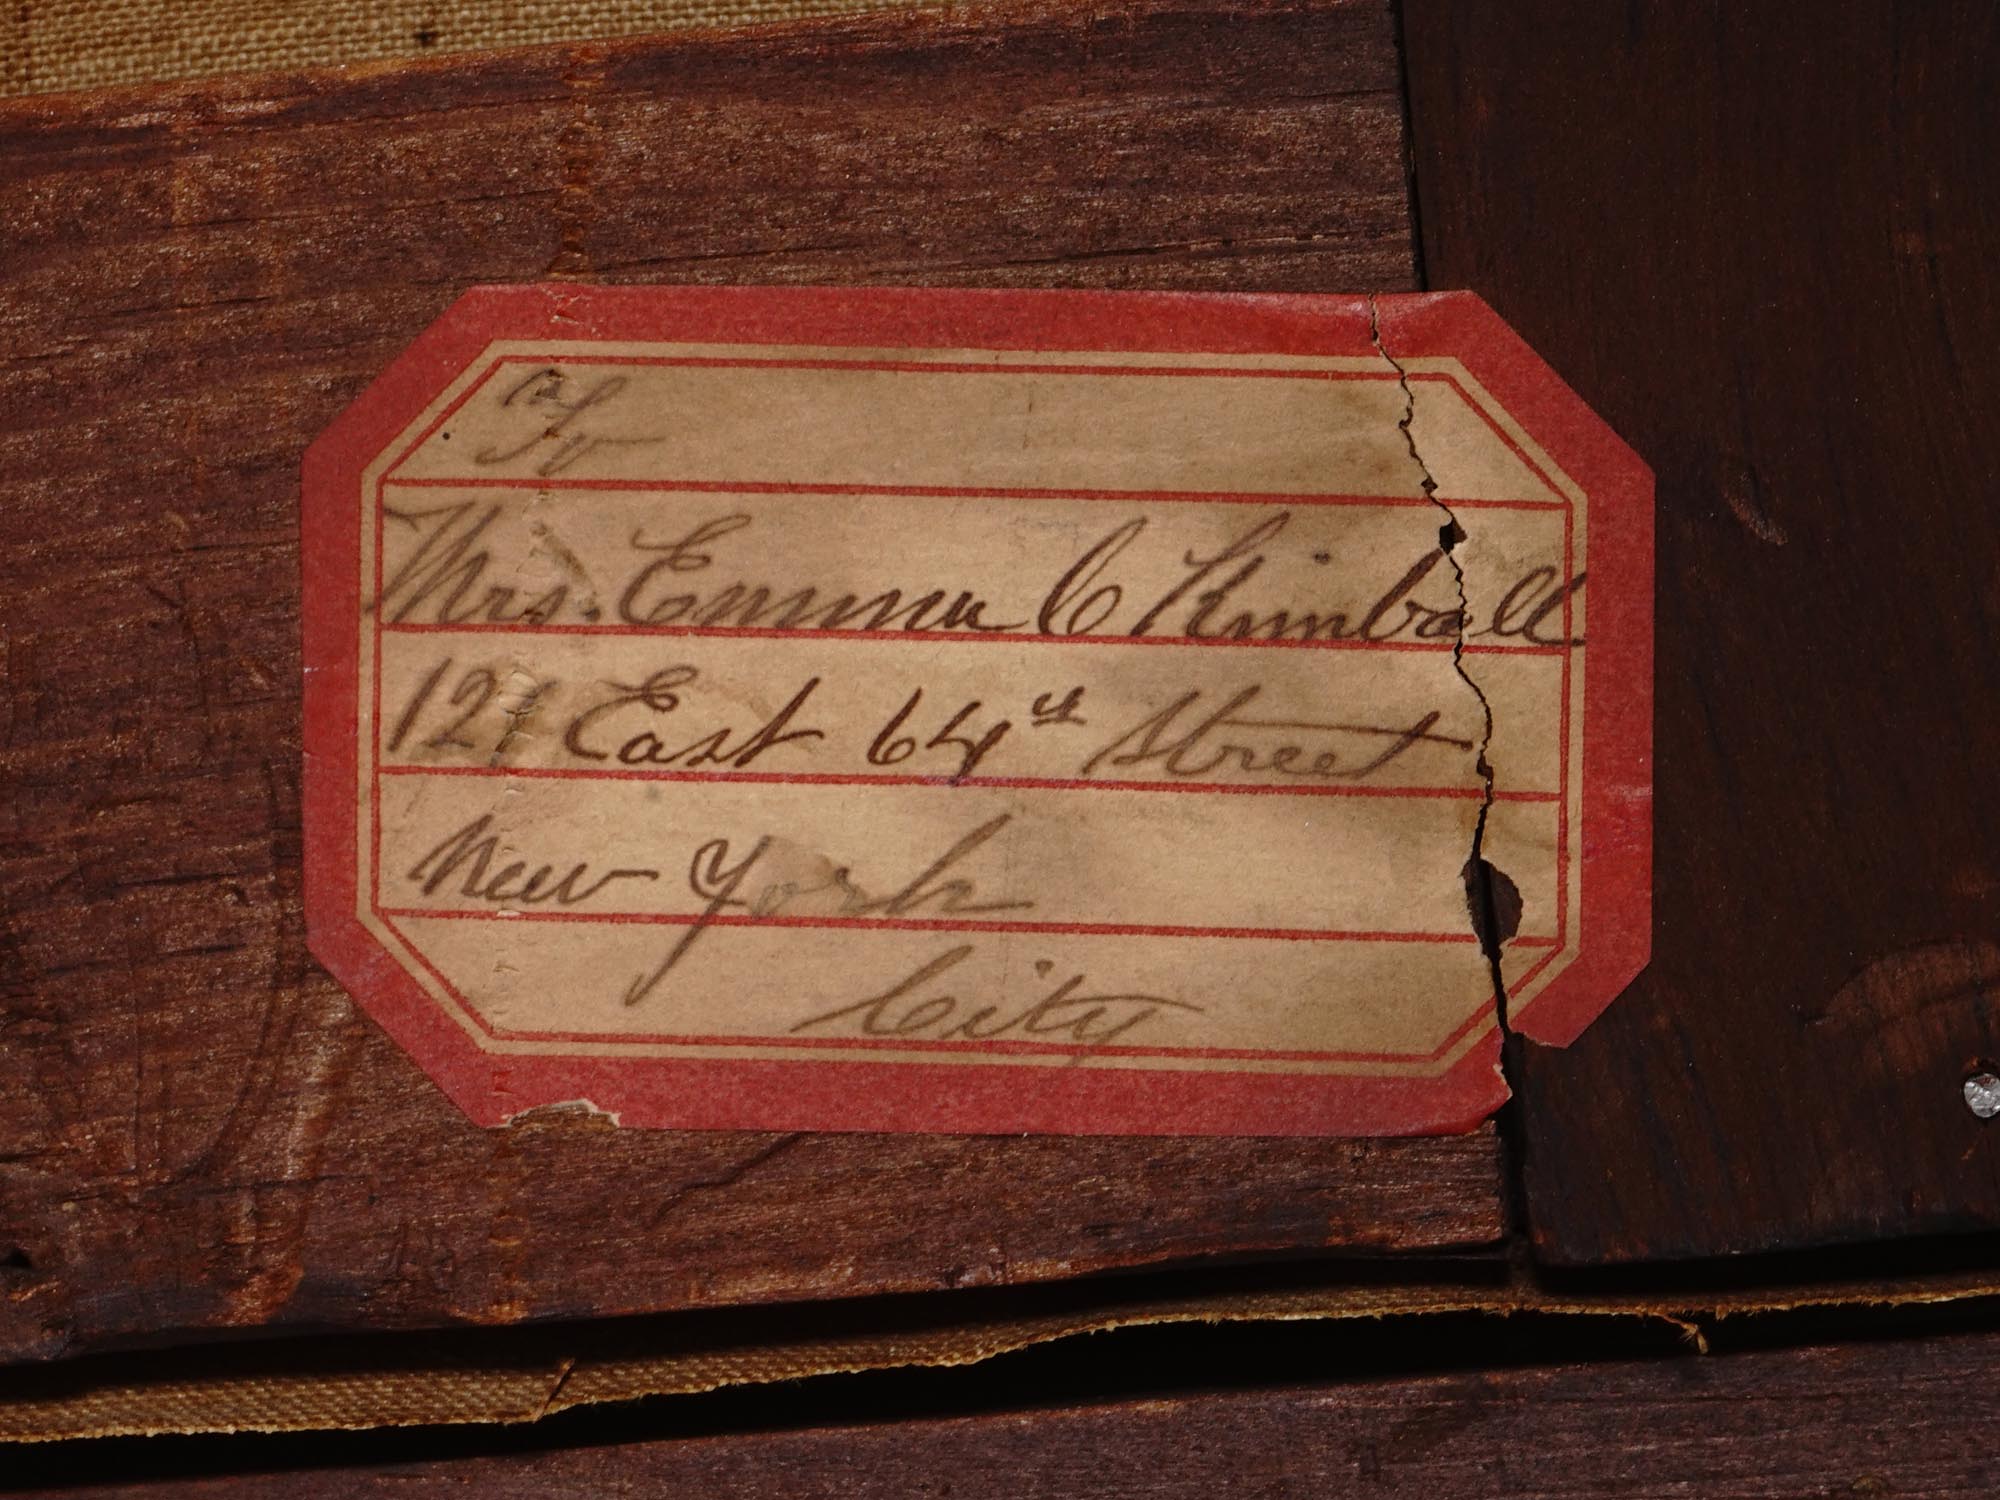 To
Mrs. Emma C Kimball
121 East 64th Street
New York
City